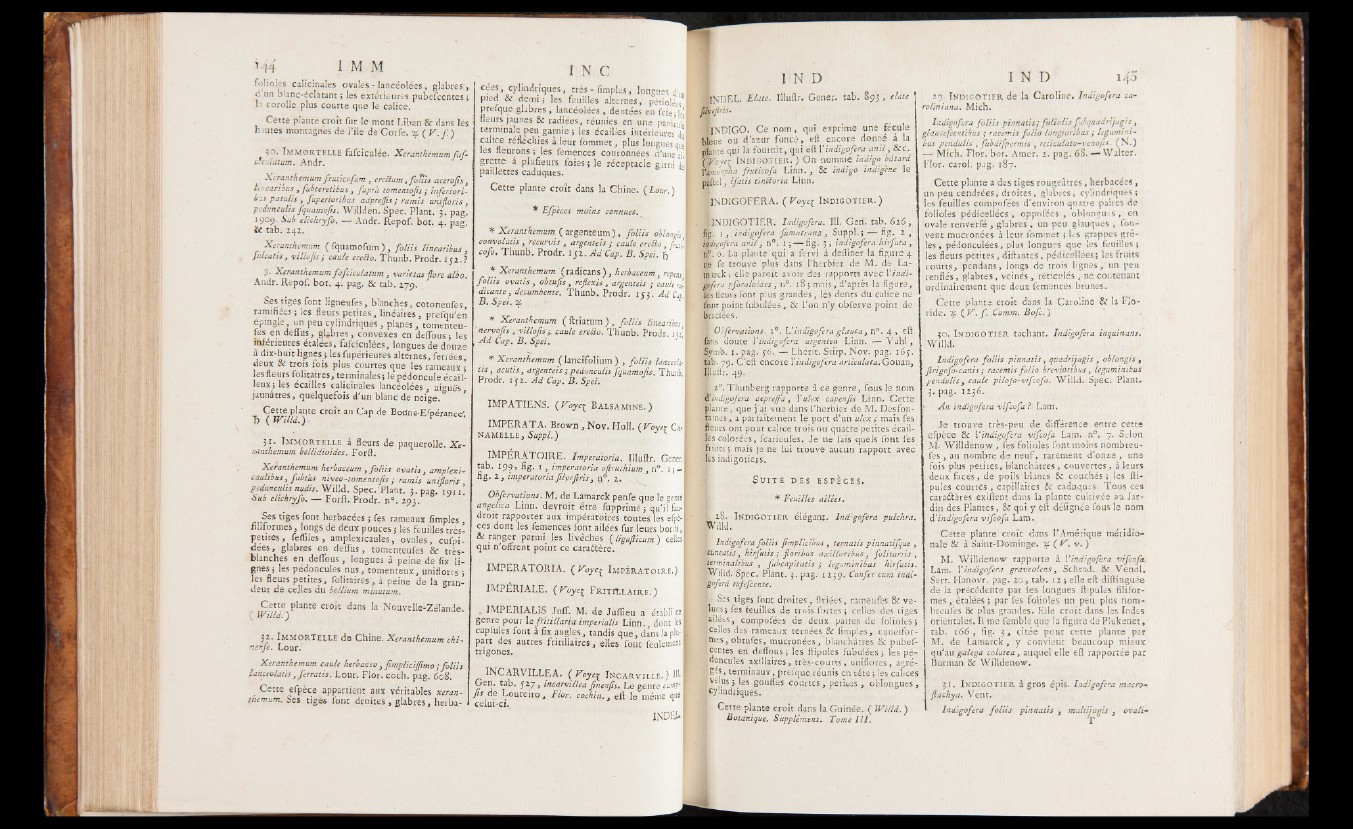 144 I M M
folioles calicinales ovales-lancéolées, glabres,
d'un blanc-éclatant; les extérieures pubescentes;
la corolle plus courte que le calice.
Cette plante croît sur le mont Liban & dans les
hautes montagnes de l'île de Corse. ♃ (V. s.)
30. IMMORTELLE fasciculée. Xeranthemum fas-
ciculatum. Andr.
Xeranthemum fruticosum, erectum, foliis acerosis,
linearibus, subteretibus, suprà tomentosis; inferiori-
bus patulis, superioribus adpressis; ramis unifloris,
pedunculis squamosis. Willden. Spec. Plant. 3. pag.
1909. Sub elichryso. — Andr. Repos. bot. 4. pag.
& tab. 242.
Xeranthemum (squamosum), foliis linearibus,
sulcatis, villosis; caule erecto. Thunb. Prodr. 152.?
β. Xeranthemum fasciculatum, varietas flore albo.
Andr. Repos. bot. 4. pag. & tab. 279.
Ses tiges sont ligneuses, blanches, cotoneuses,
ramifiées; les feuilles petites, linéaires, presqu'en
épingle, un peu cylindriques, planes, tomenteu-
ses en dessus, glabres, convexes en dessous; les
inférieures étalées, fasciculées, longues de douze
à dix-huit lignes; les supérieures alternes, serrées,
deux & trois fois plus courtes que les rameaux;
les fleurs solitaires, terminales; le pédoncule écail-
leux; les écailles calicinales lancéolées, aiguës,
jaunâtres, quelquefois d'un blanc de neige.
Cette plante croît au Cap de Bonne-Espérance.
♄ (Willd.)
31. IMMORTELLE à fleurs de paquerolle. Xe-
ranthemum bellidioides. Forst.
Xeranthemum herbaceum, foliis ovatis, amplexi-
caulibus, subtùs niveo-tomentosis; ramis unifloris,
pedunculis nudis. Willd. Spec. Plant. 3. pag. 1911.
Sub elichryso. — Forst. Prodr. n°. 293.
Ses tiges sont herbacées; ses rameaux simples,
filiformes, longs de deux pouces; les feuilles très-
petites, sessiles, amplexicaules, ovales, cuspi-
dées, glabres en dessus, tomenteuses & très-
blanches en dessous, longues à peine de six li-
gnes; les pédoncules nus, tomenteux, uniflores;
les fleurs petites, solitaires, à peine de la gran-
deur de celles du bellium minutum.
Cette plante croît dans la Nouvelle-Zélande.
(Willd.)
32. IMMORTELLE de Chine. Xeranthemum chi-
nense. Lour.
Xeranthemum caule herbaceo, simplicissimo; foliis
lanceolatis, serratis. Lour. Flor. coch. pag. 608.
Cette espèce appartient aux véritables xeran-
themum. Ses tiges sont droites, glabres, herba-
I N C
cées, cylindriques, très-simples, longues d'un
pied & demi; les feuilles alternes, pétiolées,
presque glabres, lancéolées, dentées en scie; les
fleurs jaunes & radiées, réunies en une panicule
terminale peu garnie; les écailles intérieures du
calice réfléchies à leur sommet, plus longues que
les fleurons; les semences couronnées d'une ai-
grette à plusieurs soies; le réceptacle garni de
paillettes caduques.
Cette plante croît dans la Chine. (Lour.)
* Espèces moins connues.
* Xeranthemum (argenteum), foliis oblongis,
convolutis, recurvis, argenteis; caule erecto, fruti-
coso. Thunb. Prodr. 152. Ad Cap. B. Spei. ♄
* Xeranthemum (radicans), herbaceum, repens,
foliis ovatis, obtusis, reflexis, argenteis; caule ra-
dicante, decumbente. Thunb. Prodr. 153. Ad Cap.
B. Spei. ♃
* Xeranthemum (striatum), foliis linearibus,
nervosis, villosis; caule erecto. Thunb. Prodr. 152.
Ad Cap. B. Spei.
* Xeranthemum (lancifolium), foliis lanceola-
tis, acutis, argenteis; pedunculis squamosis. Thunb.
Prodr. 152. Ad Cap. B. Spei.
IMPATIENS. (Voyez BALSAMINE.)
IMPERATA. Brown, Nov. Holl. (Voyez CA-
NAMELLE, Suppl.)
IMPÉRATOIRE. Imperatoria. Illustr. Gener.
tab. 199, fig. 1, imperatoria ostruthium, n°. 1; —
fig. 2, imperatoria sylvestris, n°. 2.
Observations. M. de Lamarck pense que le genre
angelica Linn. devroit être supprimé; qu'il fau-
droit rapporter aux impératoires toutes les espè-
ces dont les semences sont ailées sur leurs bords,
& ranger parmi les livêches (ligusticum) celles
qui n'offrent point ce caractère.
IMPERATORIA. (Voyez IMPÉRATOIRE.)
IMPÉRIALE. (Voyez FRITILLAIRE.)
IMPERIALIS Juss. M. de Jussieu a établi ce
genre pour le fritillaria imperialis Linn., dont les
capsules sont à six angles, tandis que, dans la plu-
part des autres fritillaires, elles sont seulement
trigones.
INCARVILLEA. (Voyez INCARVILLE.) Ill.
Gen. tab. 527, incarvillea sinensis. Le genre campsis
de Loureiro, Flor. cochin., est le même que
celui-ci.
INDEL.
I N D
INDEL. Elate. Illustr. Gener. tab. 893, elate
sylvestris.
INDIGO. Ce nom, qui exprime une fécule
bleue ou d'azur foncé, est encore donné à la
plante qui la fournit, qui est l'indigofera anil, &c.
(Voyez INDIGOTIER.) On nomme indigo bâtard
l'amorpha fruticosa Linn., & indigo indigène le
pastel, isatis tinctoria Linn.
INDIGOFERA. (Voyez INDIGOTIER.)
INDIGOTIER. Indigofera. Ill. Gen. tab. 626,
fig. 1, indigofera sumatrana, Suppl.; — fig. 2,
indigofera anil, n°. 1; — fig. 3, indigofera hirsuta,
n°. 6. La plante qui a servi à dessiner la figure 4
ne se trouve plus dans l'herbier de M. de La-
marck; elle paroît avoir des rapports avec l'indi-
gofera psoraloides, n°. 18; mais, d'après la figure,
les fleurs sont plus grandes, les dents du calice ne
sont point subulées, & l'on n'y observe point de
bractées.
Observations. 1°. L'indigofera glauca, n°. 4, est
sans doute l'indigofera argentea Linn. — Vahl,
Symb. 1. pag. 56. — Lhérit. Stirp. Nov. pag. 165.
tab. 79. C'est encore l'indigofera articulata. Gouan,
Illustr. 49.
2°. Thunberg rapporte à ce genre, sous le nom
d'indigofera depressa, l'ulex capensis Linn. Cette
plante, que j'ai vue dans l'herbier de M. Desfon-
taines, a parfaitement le port d'un ulex; mais ses
fleurs ont pour calice trois ou quatre petites écail-
les colorées, scarieuses. Je ne sais quels sont ses
fruits; mais je ne lui trouve aucun rapport avec
les indigotiers.
SUITE DES ESPÈCES.
* Feuilles ailées.
28. INDIGOTIER élégant. Indigofera pulchra.
Willd.
Indigofera foliis simplicibus, ternatis pinnatisque,
cuneatis, hirsutis; floribus axillaribus, solitariis,
terminalibus, subcapitatis; leguminibus hirsutis.
Willd. Spec. Plant. 3. pag. 1239. Confer cum indi-
goferâ rufescente.
Ses tiges sont droites, striées, rameuses & ve-
lues; ses feuilles de trois sortes; celles des tiges
ailées, composées de deux paires de folioles;
celles des rameaux ternées & simples, cunéifor-
mes, obtuses, mucronées, blanchâtres & pubes-
centes en dessous; les stipules subulées; les pé-
doncules axillaires, très-courts, uniflores, agré-
gés, terminaux, presque réunis en tête; les calices
velus; les gousses courtes, petites, oblongues,
cylindriques.
Cette plante croît dans la Guinée. (Willd.)
Botanique. Supplément. Tome III.
I N D 145
29. INDIGOTIER de la Caroline. Indigofera ca-
roliniana. Mich.
Indigofera foliis pinnatis; foliolis subquadrijugis,
glaucescentibus; racemis folio longioribus; legumini-
bus pendulis, subdispermis, reticulato-venosis. (N.)
— Mich. Flor. bor. Amer. 2. pag. 68. — Walter.
Flor. carol. pag. 187.
Cette plante a des tiges rougeâtres, herbacées,
un peu cendrées, droites, glabres, cylindriques;
les feuilles composées d'environ quatre paires de
folioles pédicellées, opposées, oblongues, en
ovale renversé, glabres, un peu glauques, sou-
vent mucronées à leur sommet; les grappes grê-
les, pédonculées, plus longues que les feuilles;
les fleurs petites, distantes, pédicellées; les fruits
courts, pendans, longs de trois lignes, un peu
renflés, glabres, veinés, réticulés, ne contenant
ordinairement que deux semences brunes.
Cette plante croît dans la Caroline & la Flo-
ride. ♃ (V. s. Comm. Bosc.)
30. INDIGOTIER tachant. Indigofera inquinans.
Willd.
Indigofera foliis pinnatis, quadrijugis, oblongis,
strigoso-canis; racemis folio brevioribus, leguminibus
pendulis, caule piloso-viscoso. Willd. Spec. Plant.
3. pag. 1236.
An indigofera viscosa? Lam.
Je trouve très-peu de différence entre cette
espèce & l'indigofera viscosa Lam. n°. 7. Selon
M. Willdenow, ses folioles sont moins nombreu-
ses, au nombre de neuf, rarement d'onze, une
fois plus petites, blanchâtres, couvertes, à leurs
deux faces, de poils blancs & couchés; les sti-
pules courtes, capillaires & caduques. Tous ces
caractères existent dans la plante cultivée au Jar-
din des Plantes, & qui y est désignée sous le nom
d'indigofera viscosa Lam.
Cette plante croît dans l'Amérique méridio-
nale & à Saint-Domingue. ♃ (V. v.)
M. Willdenow rapporte à l'indigofera viscosa
Lam. l'indigofera graveolens, Schrad. & Vendl.
Sert. Hanovr. pag. 20, tab. 12; elle est distinguée
de la précédente par ses longues stipules filifor-
mes, étalées; par ses folioles un peu plus nom-
breuses & plus grandes. Elle croît dans les Indes
orientales. Il me semble que la figure de Plukenet,
tab. 166, fig. 3, citée pour cette plante par
M. de Lamarck, y convient beaucoup mieux
qu'au galega colutea, auquel elle est rapportée par
Burman & Willdenow.
31. INDIGOTIER à gros épis. Indigofera macro-
stachya. Vent.
Indigofera foliis pinnatis, multijugis, ovali-
T